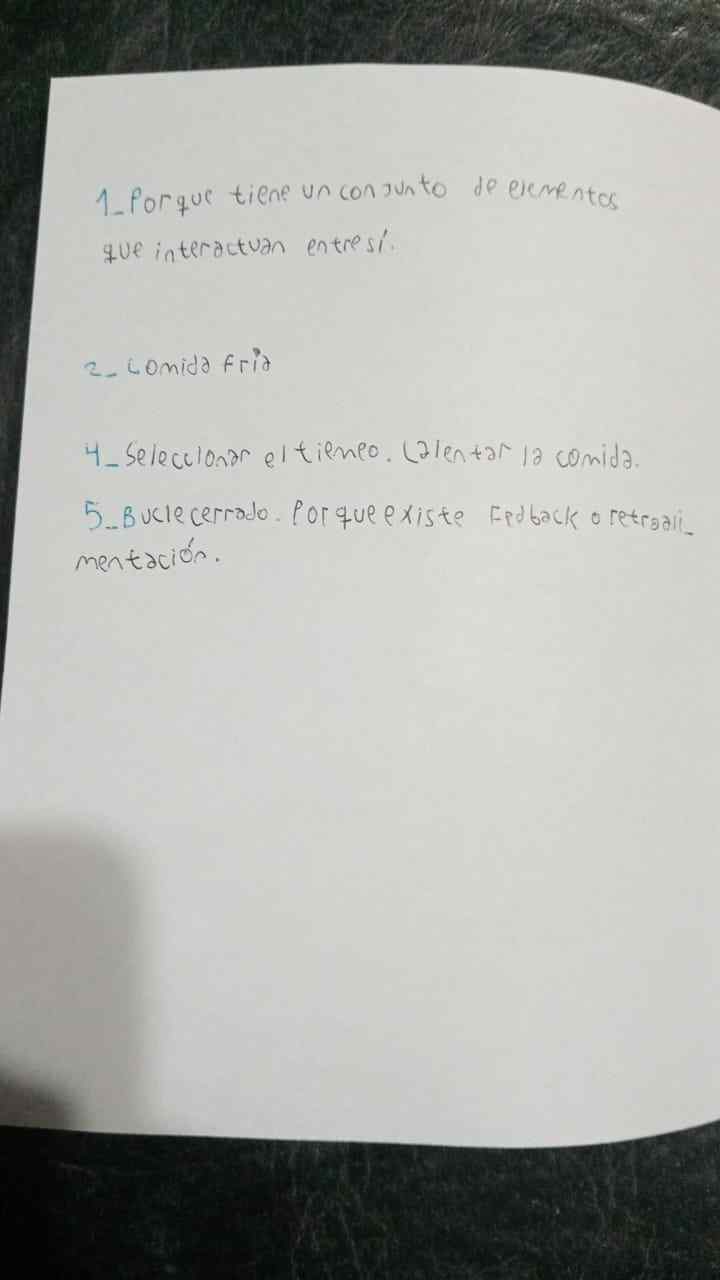 1_Porque tiene un conjunto de elementos
que interactuan entre sí.
2_ Comida fría
4_Seleccionar el tiempo. Calentar la comida.
5_Bucle cerrado. Porque existe Fedback o retroali_
mentación.